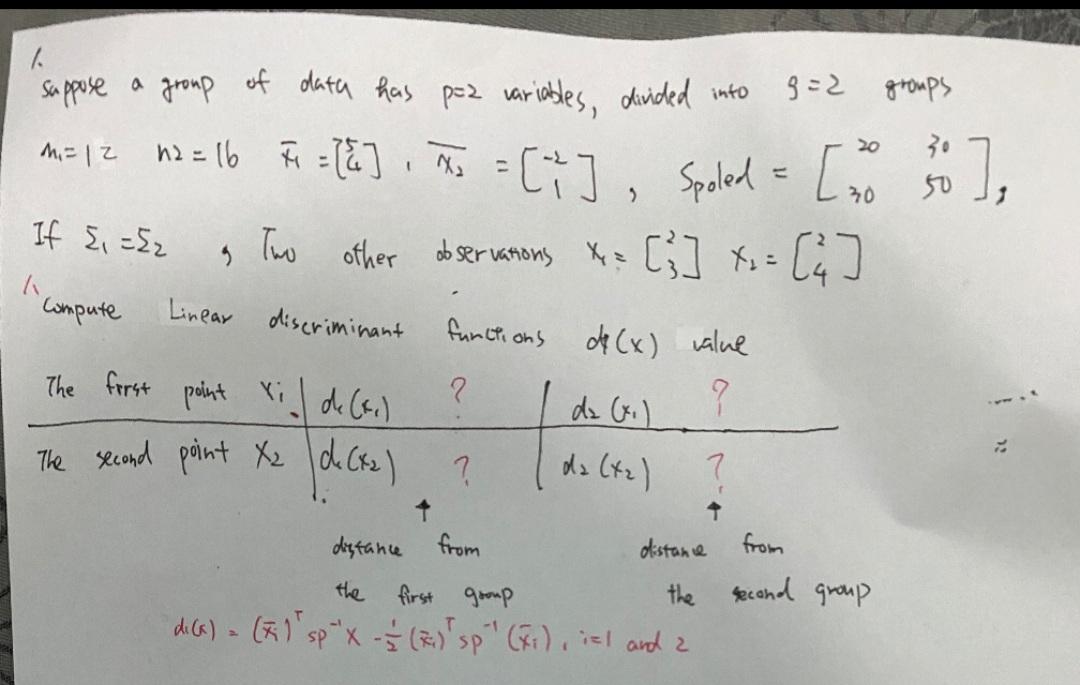 1.
Suppose a group of data has p=2 variables, divided into g=2 groups
n1=12 n2=16 x̄1 = [5 4], x̄2 = [-2 1], Spoled = [20 30 30 50],
If Σ1=Σ2, Two other observations x1 = [2 3] x2 = [2 4]
1. Compute Linear discriminant functions di(x) value
The first point x1 d1(x1) ? d2(x1) ?
The second point x2 d1(x2) ? d2(x2) ?
↑ ↑
distance from distance from
the first group the second group
di(x) = (x̄i)ᵀ sp⁻¹ x - 1/2 (x̄i)ᵀ sp⁻¹ (x̄i), i=1 and 2